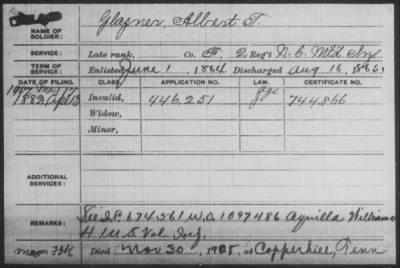 NAME OF SOLDIER: Glazner, Albert T.
SERVICE: Late rank, Co. F, 2 Reg't N. C. Mt'd Inf
TERM OF SERVICE: Enlisted June 1, 1864 Discharged Aug 16, 1865.
DATE OF FILING. CLASS. APPLICATION NO. LAW. CERTIFICATE NO.
1907 May 17
1882 Apl 13 Invalid, 446.251 744866
Widow,
Minor,
ADDITIONAL SERVICES:
REMARKS: 674561 W.O 1097486 Aquilla William
H U.S. Vol Inf.
Died Nov 30, 1925, at Copperhill, Tenn